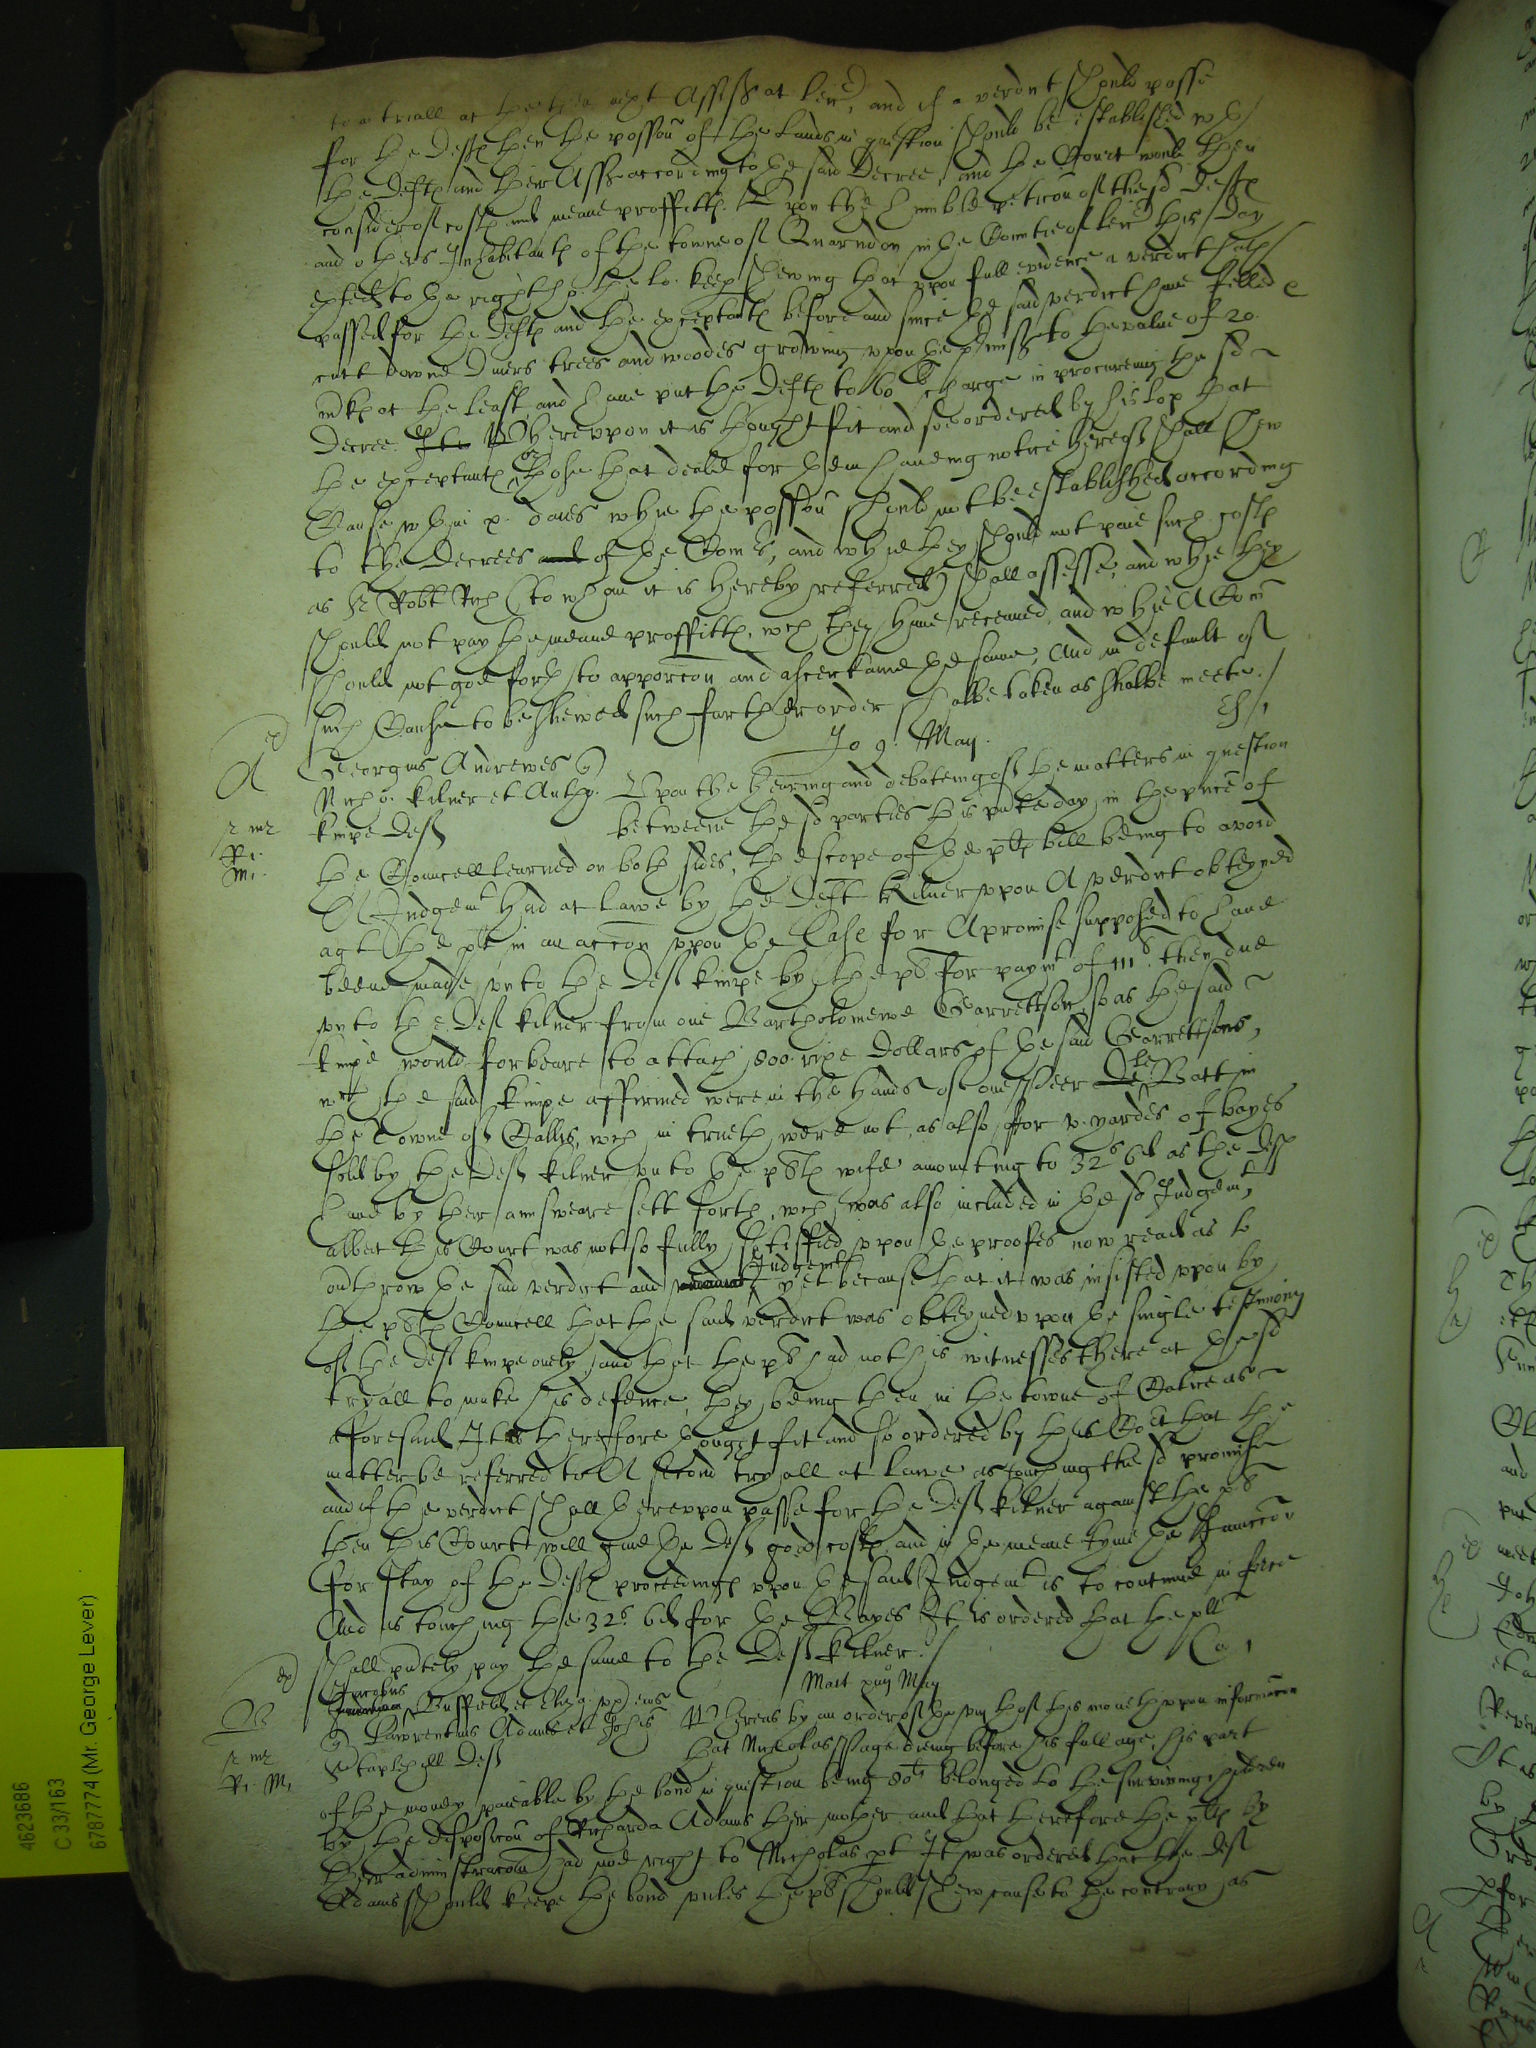 to a triall at the then next Assiss at Leic, and if a verdict should passe
for the Defts then the possion of the Lands in question should be established wth
the Defts and their Assss according to the said Decree, and the Court would then
consider of costs and meane proffitts. Upon the humble peticon of the sd Defts
and others Inhabitants of the towne of Quarndon in the Countie of Leic this day
exhited to the right ho: the lo: keep shewing that upon full evidence a verdict hath
passed for the Defts and the exceptants before and since the said verdict have felled &
cutt downe divers trees and woodes growing upon the pmiss to the value of 20
mks at the least, and have put the Defts to 60l charge in procureing the sd
Decree Whereupon it is thought fit and soe ordered by his lop that
the exceptants or those that deale for them haveing notice hereof shall shew
Cause wthin x. daies whie the possion should not be established according
to the Decrees of the Comrs, and whie they should not paie such costs
as Sr Robt Rich (to whom it is hereby referred) shall assesse, and whie they
should not pay the meane proffitts, wch they have receaved, and whie A Com
should not goe forth to apporcon and ascertaine the same, And in default of
such Cause to be shewed such further order shalbe taken as shalbe meete.
Jo 9. May.
Georgius Andrewes q
Rich: Kilner et Anth: Kempe Deft
Upon the hearing and debateing of the matters in question
betweene the sd parties this pnte day, in the pnce of
the Councell learned on both sides, the scope of the plts bill being to avoid
A Judgemt had at lawe by the Deft Kilner upon A verdict obteyned
agt the plt in an accon upon the Case for A promise supposed to have
beene made unto the Deft Kempe by the plt for paymt of then due
unto the Deft Kilner from one Bartholomewe Garrettson, so as the said
Kempe would forbeare to attach 800 Dollars of the said Garrettsons,
wch the said Kempe affirmed were in the hands of one Peter De le Batt in
the Towne of Callis, wch in trueth were not, as also for v. yardes of bayes
sold by the Deft Kilner unto the plts wife amounting to 32s 6d as the Defts
have by their answeare sett forth, wch was also included in the sd Judgemt,
albeit this Court was not so fully satisfied upon the proofes now read as to
overthrow the said verdict and Judgemt yet because that it was insisted upon by
the plts Councell that the said verdict was obteyned upon the single testimony
of the Deft Kempe onely, and that the plt had not his witnesses there at the sd
tryall to make his defence, they being then in the towne of Calice as
aforesaid It is therefore thought fit and so ordered by this Cort that the
matter be referred to A second tryall at lawe as touching the sd promise
and if the verdict shall thereupon passe for the Deft Kilner against the plt
then this Court will give the Deft good costs, and in the meane tyme the Iniunccon
for stay of the Defts proceedings upon the said Judgemt is to continue in force
And as touching the 32s 6d for the Bayes It is ordered that the plt
shall pntely pay the same to the Deft Kilner.
Mart xiijo May
Jacobus Buffeild et Eliz: uxor eius
q Laurentius Adams et Johes
Staplehyll Deft
Whereas by an order of the of this moneth upon informacon
that Nicholas Page dieing before his full age, his part
of the money paieable by the bond in question being 80l belonged to the surviving children
by the disposicon of Richarda Adams their mother and that therefore the plts by
their administracon had noe right to Nicholas pt It was ordered that the Deft
Adams should keepe the bond unles the plt should shew cause to the contrary as
A
r mr
Ri:
Mi:
B
r mr
Ri: Mi:
4623686
C 33/163
6787774 (Mr. George Lever)